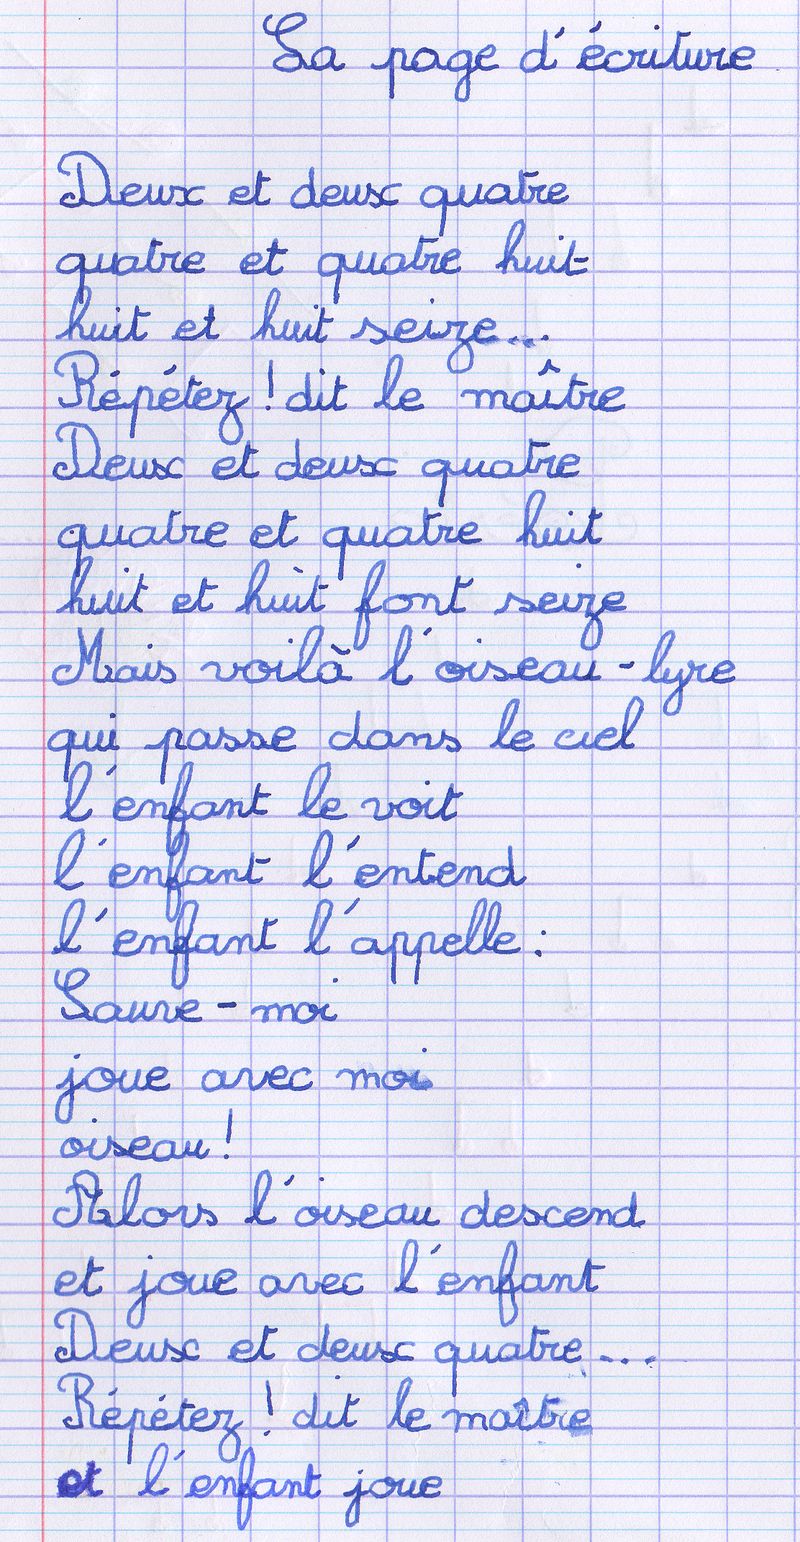 La page d'écriture
Deux et deux quatre
quatre et quatre huit
huit et huit seize...
Répétez ! dit le maître
Deux et deux quatre
quatre et quatre huit
huit et huit font seize
Mais voilà l'oiseau-lyre
qui passe dans le ciel
l'enfant le voit
l'enfant l'entend
l'enfant l'appelle :
Sauve-moi
joue avec moi
oiseau !
Alors l'oiseau descend
et joue avec l'enfant
Deux et deux quatre...
Répétez ! dit le maître
et l'enfant joue